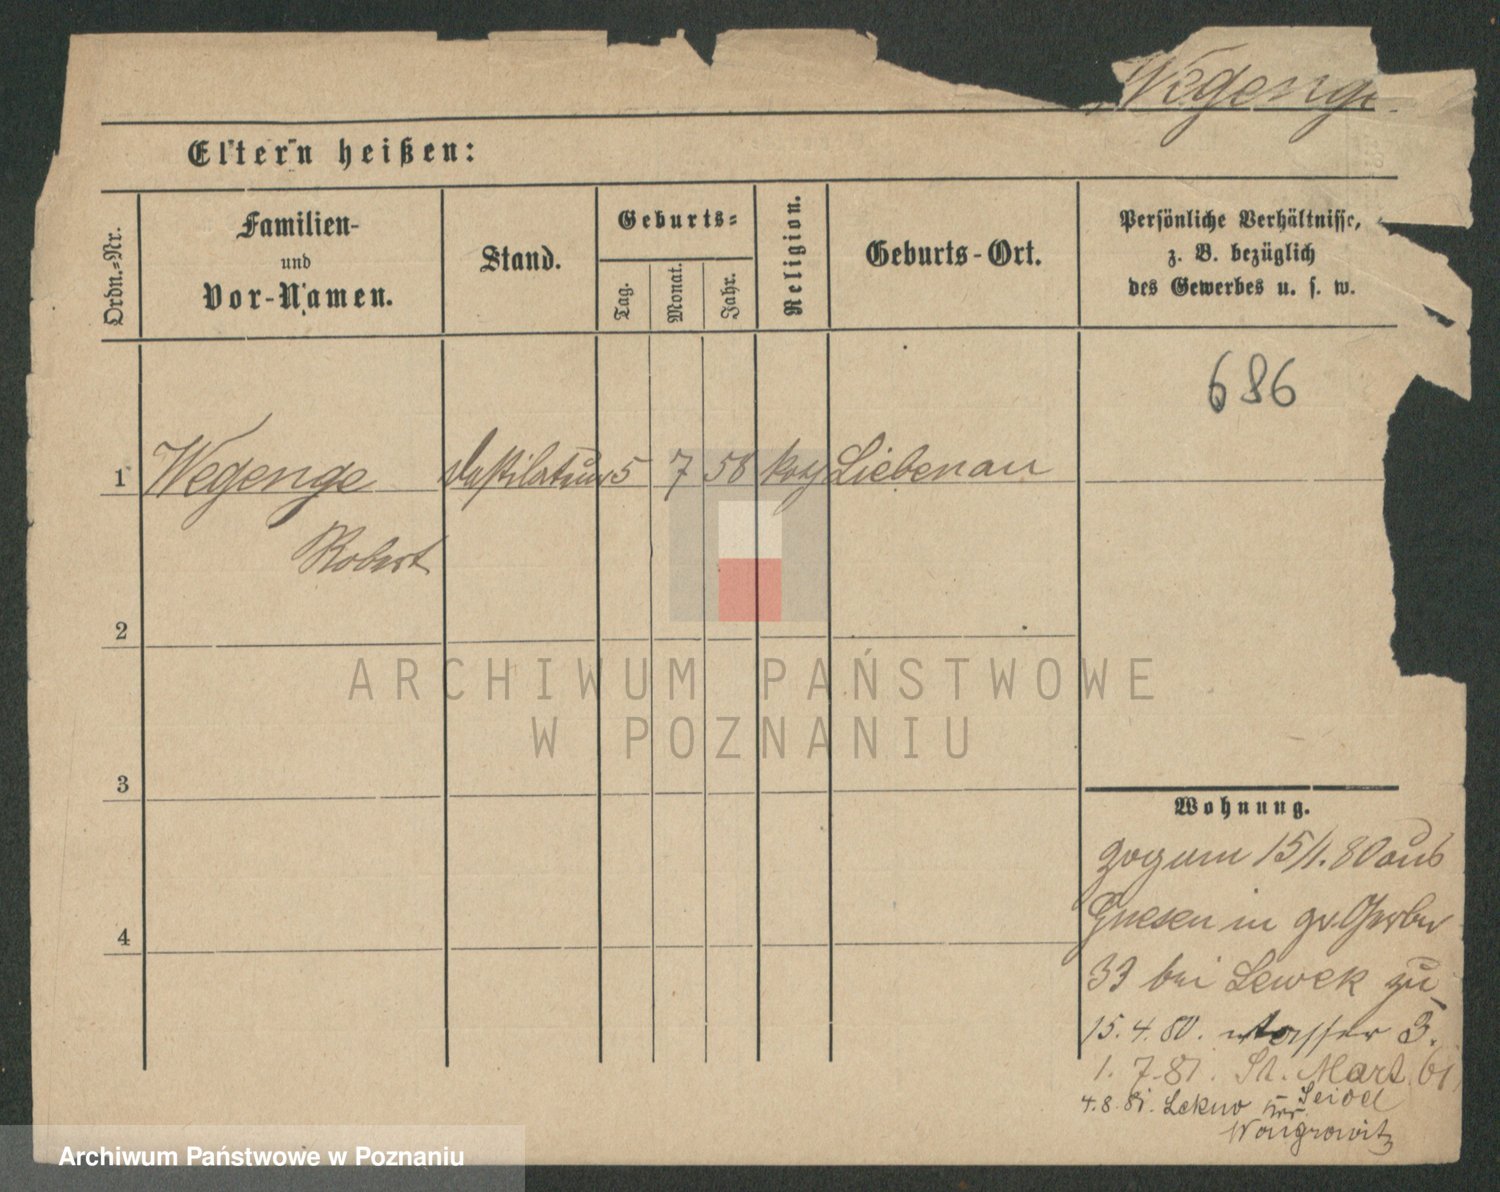 Wegenge
Eltern heißen:
Ordn.-Nr.
Familien-
und
Vor-Namen.
Stand.
Geburts-
Tag.
Monat.
Jahr.
Religion.
Geburts-Ort.
Persönliche Verhältnisse,
z. B. bezüglich
des Gewerbes u. s. w.
686
1 Wegenge 5 7 58 Liebenau
Robert
2
3
4
ARCHIWUM PAŃSTWOWE
W POZNANIU
Wohnung.
15/1.80 aus
Gnesen in gr Gerber
33 bei Lewek zu
15.4.80. Wasser 3.
1. 7.81. St. Mart. 61
Seidel
4.8.81. Lekno Krr.
Wongrowitz
Archiwum Państwowe w Poznaniu